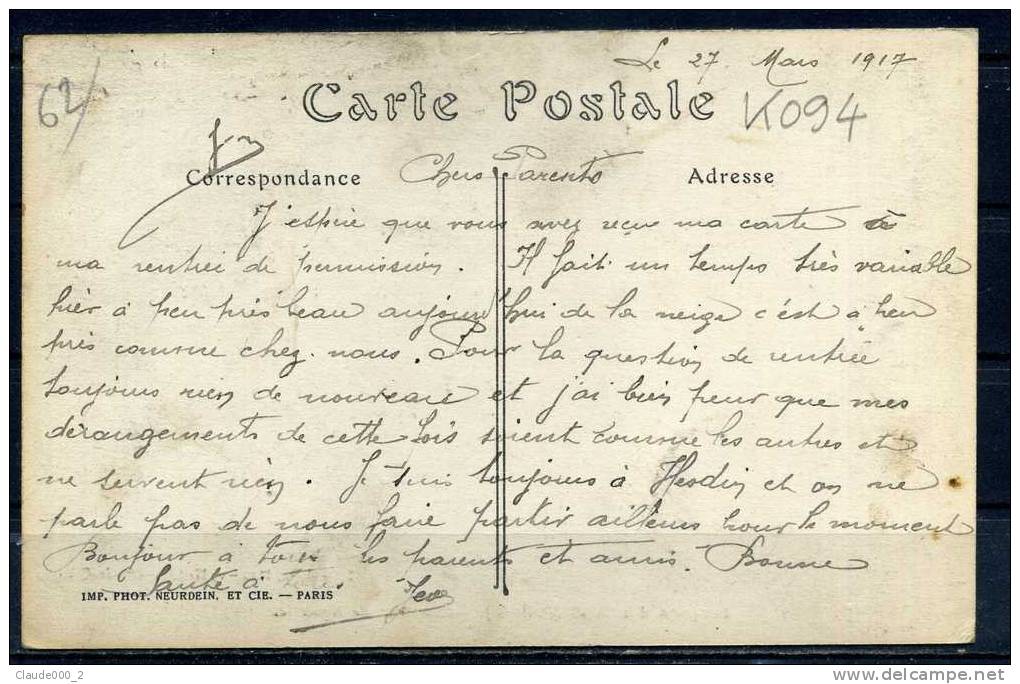 Le 27 Mars 1917
62/.
Carte Postale
K094
Correspondance
Chers Parents
Adresse
J'espère que vous avez reçu ma carte à
ma rentrée de permission. Il fait un temps très variable
hier à peu près beau aujourd'hui de la neige c'est à peu
près comme chez nous. Pour la question de rentrée
toujours rien de nouveau et j'ai bien peur que mes
dérangements de cette fois soient comme les autres et
ne servent rien. Je suis toujours à Hesdin et on ne
parle pas de nous faire partir ailleurs pour le moment
Bonjour à tous les parents et amis. Bonne
Santé à tous.
IMP. PHOT. NEURDEIN. ET CIE. — PARIS
Claude000_2
www.delcampe.net